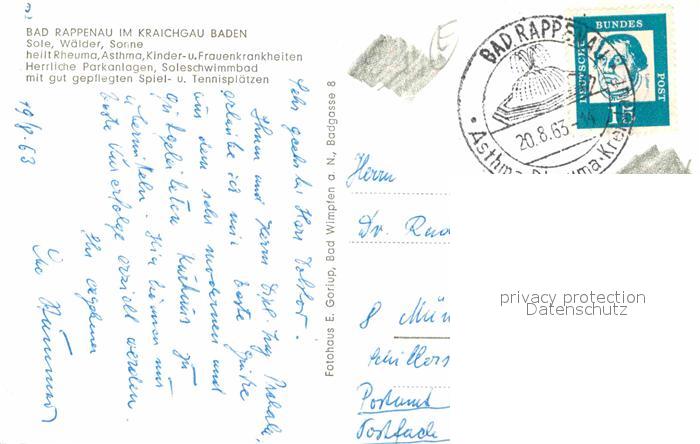 BAD RAPPENAU IM KRAICHGAU BADEN
Sole, Wälder, Sonne
heilt Rheuma, Asthma, Kinder- u. Frauenkrankheiten
Herrliche Parkanlagen, Soleschwimmbad
mit gut gepflegten Spiel- u. Tennisplätzen
19/8.63
Sehr geehrter Herr
Ihnen und Herrn Dipl. Ing.
erlaube ich mir beste Grüße
aus dem sehr modernen und
gut geleiteten Kurhaus zu
übermitteln. Hier können nur
beste Kurerfolge erzielt werden.
Ihr ergebener
Fotohaus E. Goriup, Bad Wimpfen a. N., Badgasse 8
BAD RAPPENAU
20.8.63-14
Asthma-Rheuma
DEUTSCHE BUNDES POST
15
Herrn
Dr.
8 Mün
Schillers
Postamt
Postfach
privacy protection
Datenschutz